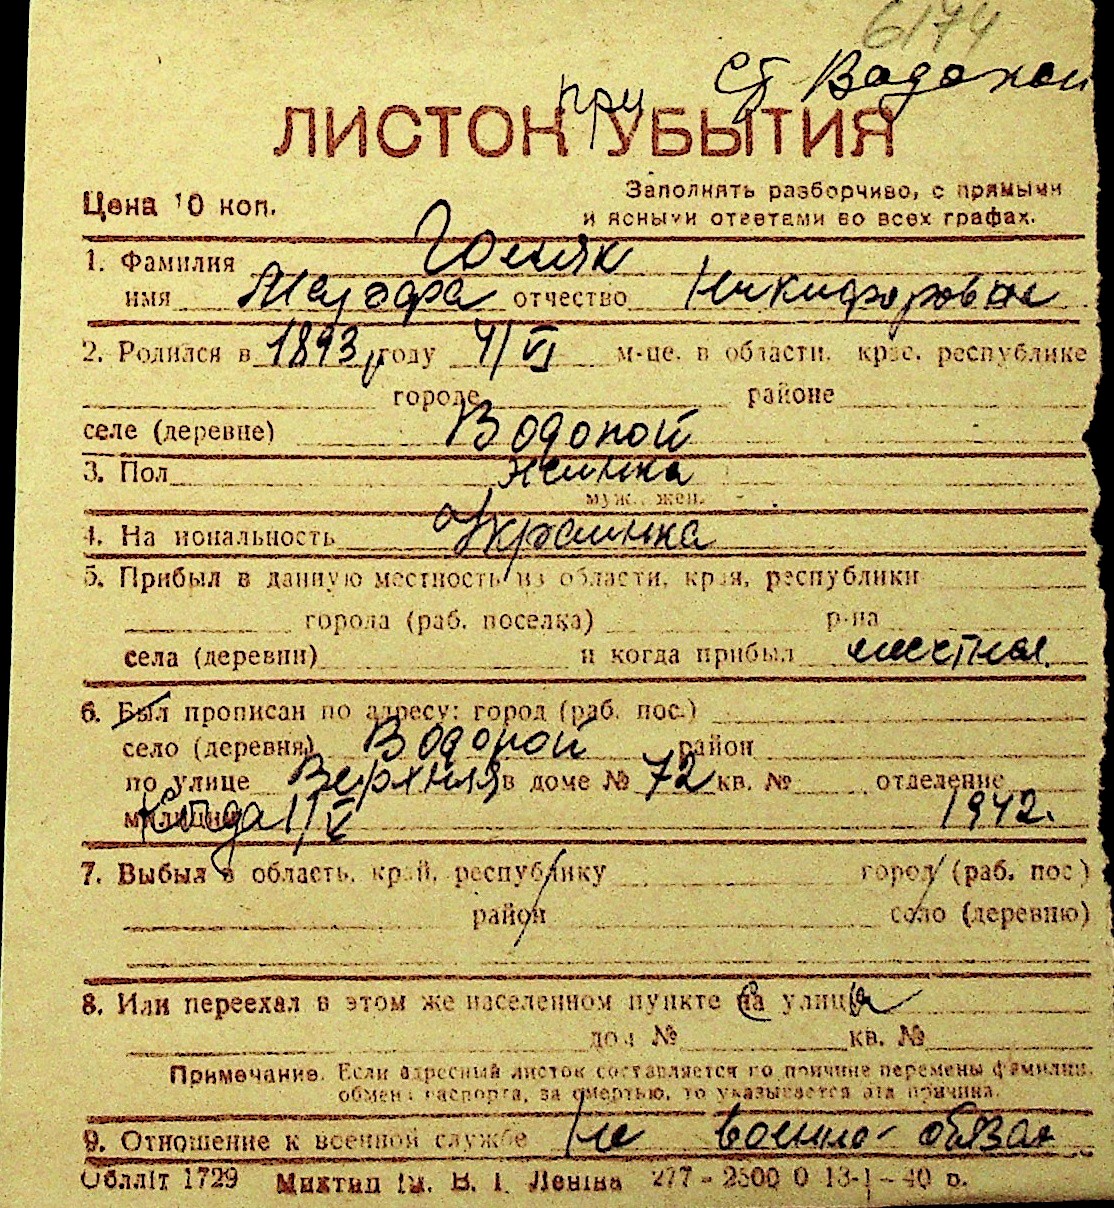 6174
Ст Водопой
при
ЛИСТОК УБЫТИЯ
Цена 10 коп.
Заполнять разборчиво, с прямыми
и ясными ответами во всех графах.
1. Фамилия
имя отчество Никифоровна
2. Родился в 1893 году 4/VI м-це. в области, крае, республике
городе районе
селе (деревне) Водопой
3. Пол
муж., жен.
4. Национальность Украинка
5. Прибыл в данную местность из области, края, республики
города (раб. поселка) р-на
села (деревни) и когда прибыл местная
6. Был прописан по адресу: город (раб. пос.)
село (деревня) Водопой район
по улице Верхняя в доме № 72 кв. № отделение
милиции 1/V 1942.
7. Выбыл в область, край, республику город (раб. пос)
район село (деревню)
8. Или переехал в этом же населенном пункте на улицу
дом № кв. №
Примечание. Если адресный листок составляется по причине перемены фамилии,
обмена паспорта, за смертью, то указывается эта причина.
9. Отношение к военной службе Не военно-обязан
Облліт 1729 Миктип ім. В. І. Леніна 277 – 2500 0 13-I – 40 р.